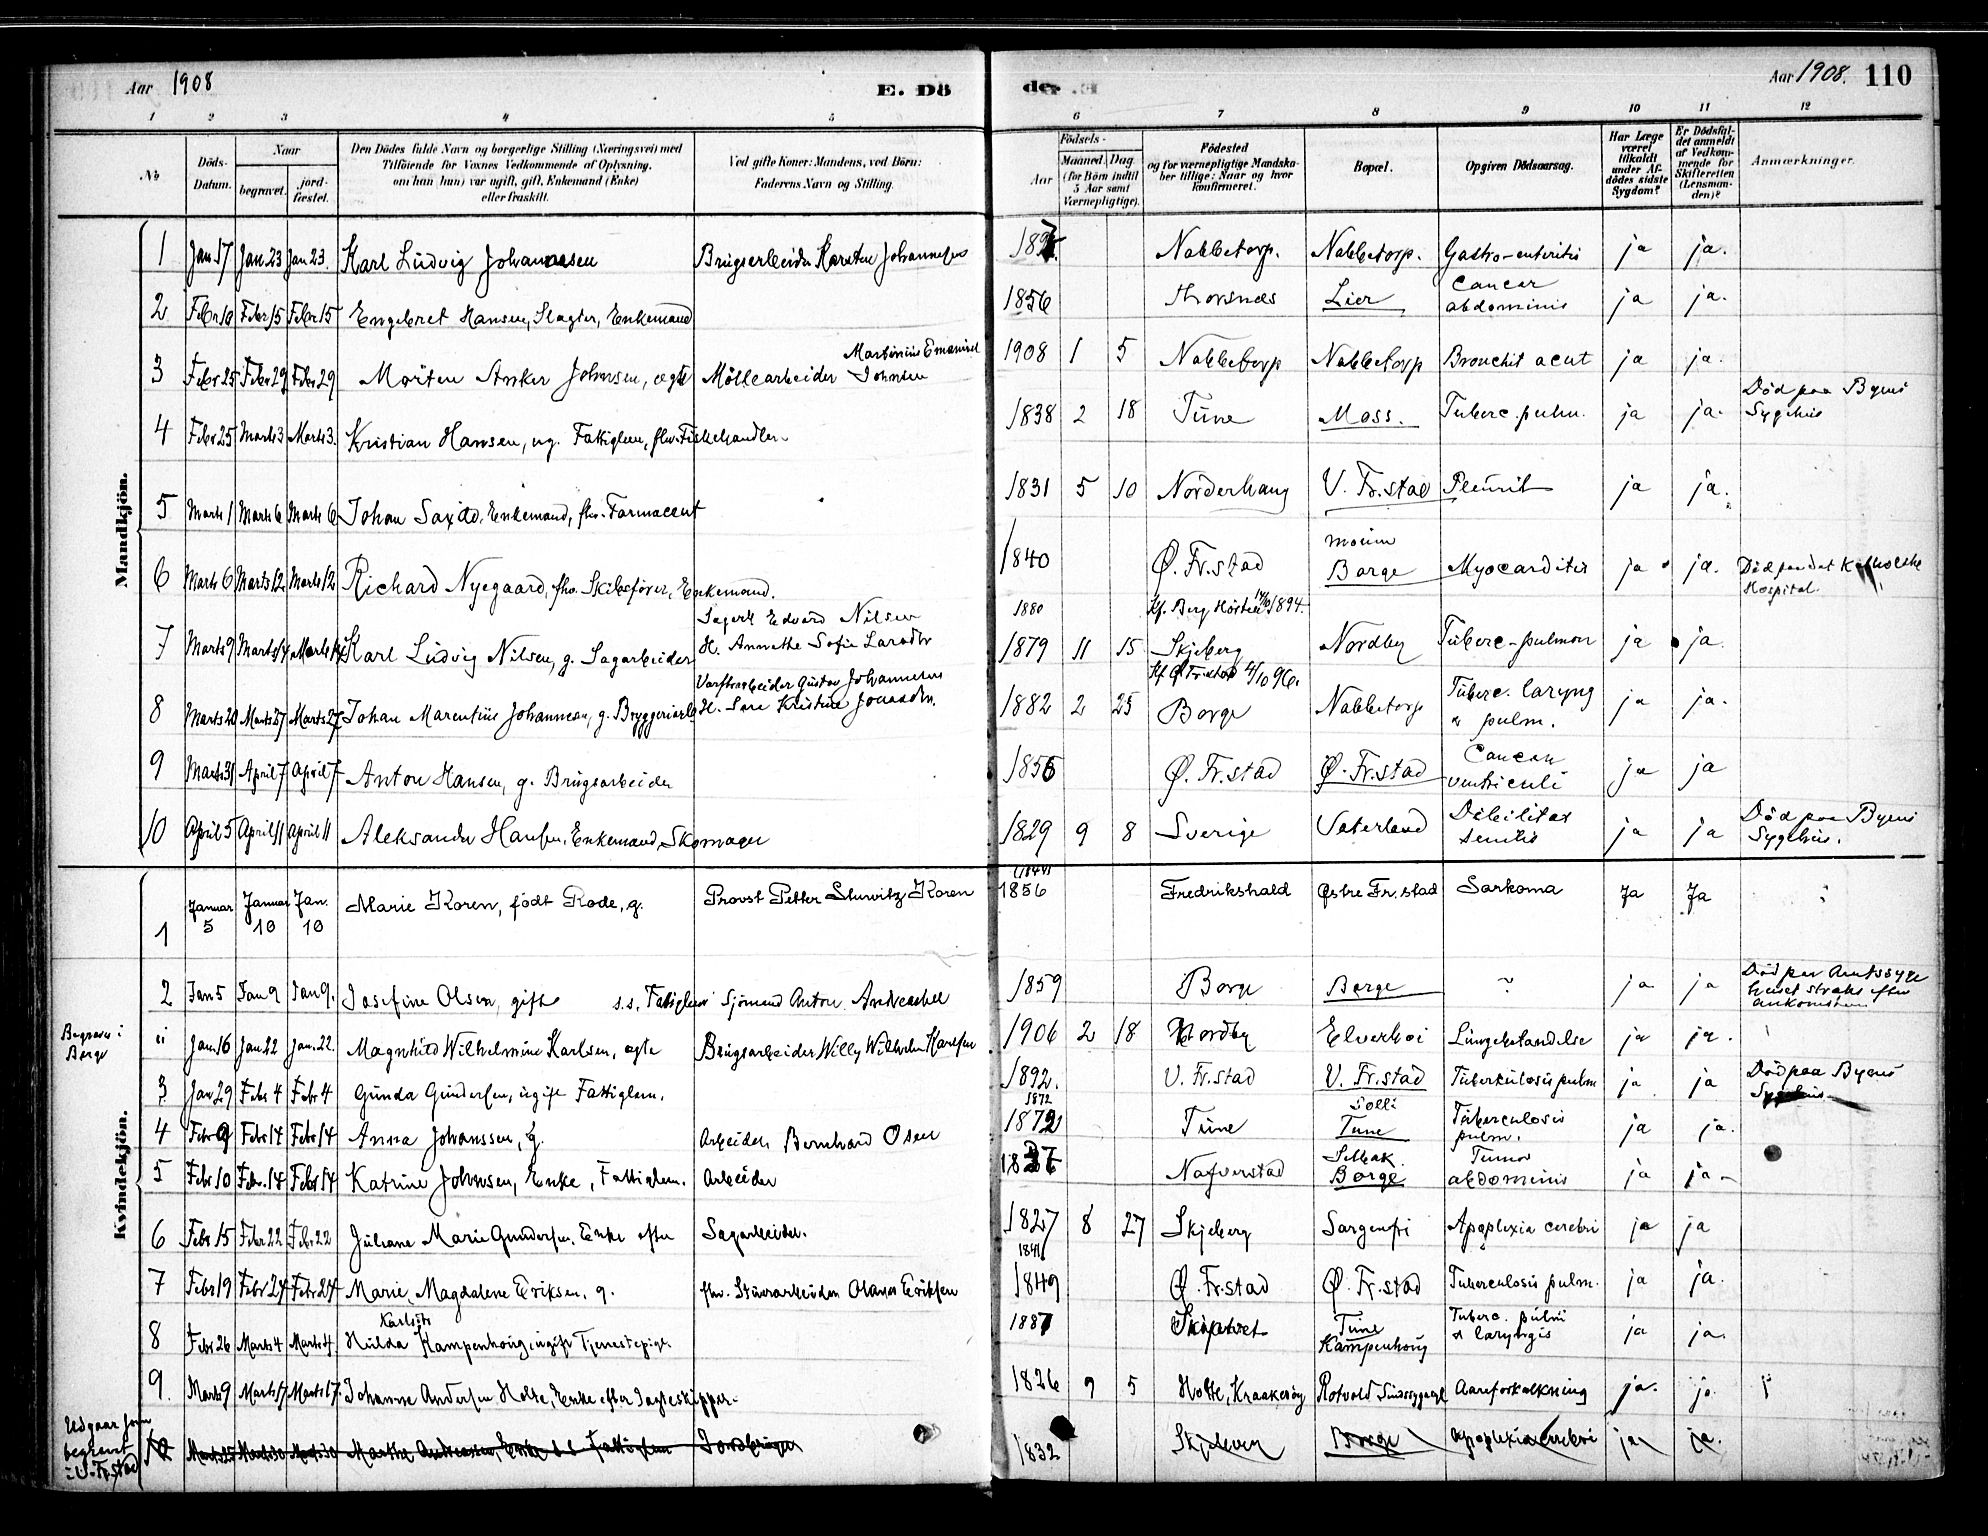 Aar 1908
E. Dö
de.
Aar 1908. 110
1 2 3 4 5 6 7 8 9 10 11 12
No
Döds-Datum.
Naar
begravet.
jord-fæstet.
Den Dödes fulde Navn og borgerlige Stilling (Næringsvei) med
Tilföiende for Voxnes Vedkommende af Oplysning,
om han (hun) var ugift, gift, Enkemand (Enke)
eller fraskilt.
Ved gifte Koner: Mandens, ved Börn:
Faderens Navn og Stilling.
Födsels-
Aar
Maaned. Dag
(for Börn indtil
5 Aar samt
Værnepligtige).
Födested
og for værnepligtige Mandska-
ber tillige: Naar og hvor
konfirmeret.
Bopæl.
Opgiven Dödsaarsag.
Har Læge
været
tilkaldt
under Af-
dödes sidste
Sygdom?
Er Dödsfal-
det anmeldt
af Vedkom-
mende for
Skifteretten
(Lensman-
den)?
Anmærkninger.
Mandkjön.
1 Jan 17 Jan 23 Jan 23. Karl Ludvig Johannesen Brugsarbeider Karsten Johannesen Nabbetorp. Nabbetorp. Gastro-enteritis ja ja.
2 Febr 10 Febr 15 Febr 15 Engebret Hansen, Slagter, Enkemand 1856 Thorsnes Lier Cancer abdominis ja ja.
3 Febr 25 Febr 29 Febr 29 Morten Anker Johnsen, ægte Möllearbeider Martinius Emanuel Johnsen 1908 1 5 Nabbetorp Nabbetorp Bronchit acut ja ja.
4 Febr 25 Marts 3 Marts 3. Kristian Hansen, ug. Fattiglem, fhv. Fiskehandler. 1838 2 18 Tune Moss. Tuberc. pulm. ja ja. Död paa Byens Sygehus
5 Marts 1 Marts 6 Marts 6 Johan Saxild, Enkemand, fhv. Farmaceut 1831 5 10 Norderhaug V. Fr.stad Pleurit ja ja.
6 Marts 6 Marts 12 Marts 12 Richard Nyegaard, fhv. Skibsförer, Enkemand. 1840 Ø. Fr.stad Borge Myocarditis ja ja. Död paa det Katholske Hospital.
7 Marts 9 Marts 14 Marts 14 Karl Ludvig Nilsen, g. Sagarbeider Sagarb Edvard Nilsen
H. Annethe Sofie Larsdtr 1880 1879 11 15 Kf. Berg Hösten 14/10 1894. Skjeberg Nordby Tuberc. pulmon ja ja
8 Marts 20 Marts 27 Marts 27 Johan Marentius Johannesen, g. Bryggeriarb Varftsarbeider Gustav Johannesen
H. Sine Kristine Jonasdtr. 1882 2 25 Kf Ø Fr.stad 4/10 96. Borge Nabbetorp Tuberc. laryng & pulm. ja ja.
9 Marts 31 April 7 April 7 Anton Hansen, g. Brugsarbeider 1856 Ø. Fr.stad Ø. Fr.stad Cancer ventriculi ja ja
10 April 5 April 11 April 11 Aleksander Hansen, Enkemand, Skomager 1829 9 8 Sverige Vaterland Debilitas senilis ja ja Död paa Byens Sygehus.
Kvindekjön.
1 Januar 5 Januar 10 Jan. 10 Marie Koren, födt Rode, g. Provst Petter Stuwitz Koren 1856 Fredrikshald Østre Fr.stad Sarkoma Ja Ja
2 Jan 5 Jan 9 Jan 9. Josefine Olsen, gift s.s. Fattiglem Sjömand Anton 1859 Borge Borge ? ja ja Död paa Amtssyge huset straks efter ankomsten
Begraven i
Borge
ii Jan. 16 Jan 22 Jan. 22. Magnhild Wilhelmine Karlsen, ægte Brugsarbeider Willy Wilhelm Karlsen 1906 2 18 Nordby Elverhoi Lungebetændelse ja ja.
3 Jan 29 Febr 4 Febr 4 Gunda Gundersen, ugift Fattiglem. 1892. V. Fr.stad V. Fr.stad Tuberkulosis pulm ja ja Död paa Byens Sygehus
4 Febr 9 Febr 14 Febr 14 Anna Johanssen, g. Arbeider Bernhard Osen 1872 1872 Tune Solli Tune Tuberculosis pulm. ja ja.
5 Febr 10 Febr. 14 Febr 14 Katrine Johnsen, Enke, Fattiglem. Arbeider 1837 Naverstad Selbak. Borge Tumor abdominis ja ja
6 Febr 15 Febr 22 Febr. 22 Juliane Marie Gundersen. Enke efter Sagarbeider. 1827 8 27 Skjeberg Sorgenfri Apoplexia cerebri ja ja
7 Febr 19 Febr 24 Febr 24 Marie Magdalene Eriksen, g. fhv. Stuerarbeider Olaves Eriksen 1841 1849 Ø. Fr.stad Ø. Fr.stad Tuberculosis pulm. ja ja.
8 Febr 26 Marts 4 Marts 4. Hulda Karlsdtr Kampenhoug, ugift Tjenestepige. 1887 Skiptvet Tune Kampenhoug Tuberc. pulm & laryngis ja ja.
9. Marts 9 Marts 17 Marts 17. Johanne Andersen Holte, Enke efter Jagteskipper. 1826 9 5 Holte, Kraakeröy Rotvold Sindssygeasyl Aareforkalkning ja. ja
Udgaar som
begravet
i V. Fr.stad
10 Marts 25 Marts 30 Marts 30 Marthe Andreassen, Enke s s Fattiglem Jordbruger 1832 Skjeberg Borge Apoplexia cerebri ja ja.